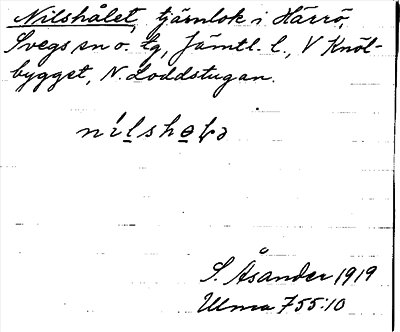 Nilshålet, tjärnlok i Härrö,
Svegs sn o. tg, Jämtl. l., V Knöl-
bygget, N. Loddstugan.
S. Åsander 1919
Ulma 755:10